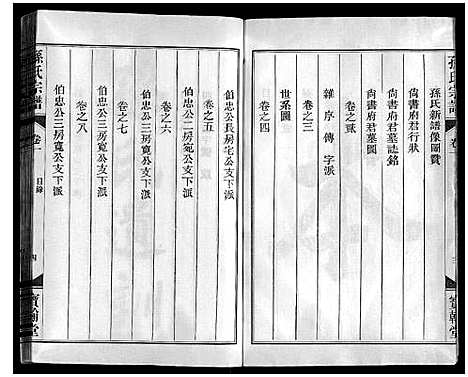 孫氏宗譜
卷一
三
寳翰堂
孫氏新譜像圖贊
尙書府君行狀
尙書府君墓誌銘
尙書府君墓圖
卷之貳
雜序傳字派
卷之三
世系圖
卷之四
伯忠公長房宅公支下派
卷之五
伯忠公二房宛公支下派
卷之六
伯忠公三房寬公支下派
卷之七
伯忠公三房寬公支下派
卷之八
孫氏宗譜
卷一
目錄
四
寳翰堂